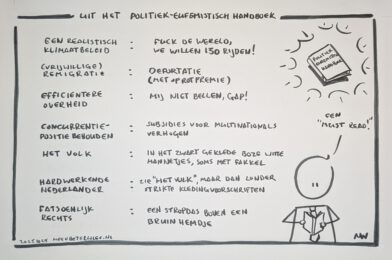 UIT HET POLITIEK-EUFEMISTISCH HANDBOEK
EEN REALISTISCH KLIMAATBELEID : FUCK DE WERELD, WE WILLEN 150 RIJDEN!
(VRIJWILLIGE) REMIGRATIE : DEPORTATIE (MET OPROTPREMIE)
EFFICIËNTERE OVERHEID : MIJ NIET BELLEN, GAP!
CONCURRENTIE-POSITIE BEHOUDEN : SUBSIDIES VOOR MULTINATIONALS VERHOGEN
HET VOLK : IN HET ZWART GEKLEDE BOZE WITTE MANNETJES, SOMS MET FAKKEL
HARDWERKENDE NEDERLANDER : ZIE "HET VOLK", MAAR DAN ZONDER STRIKTE KLEDINGVOORSCHRIFTEN
FATSOENLIJK RECHTS : EEN STROPDAS BOVEN EEN BRUIN HEMDJE
POLITIEK
HANDBOEK
EEN
"MUST READ!"